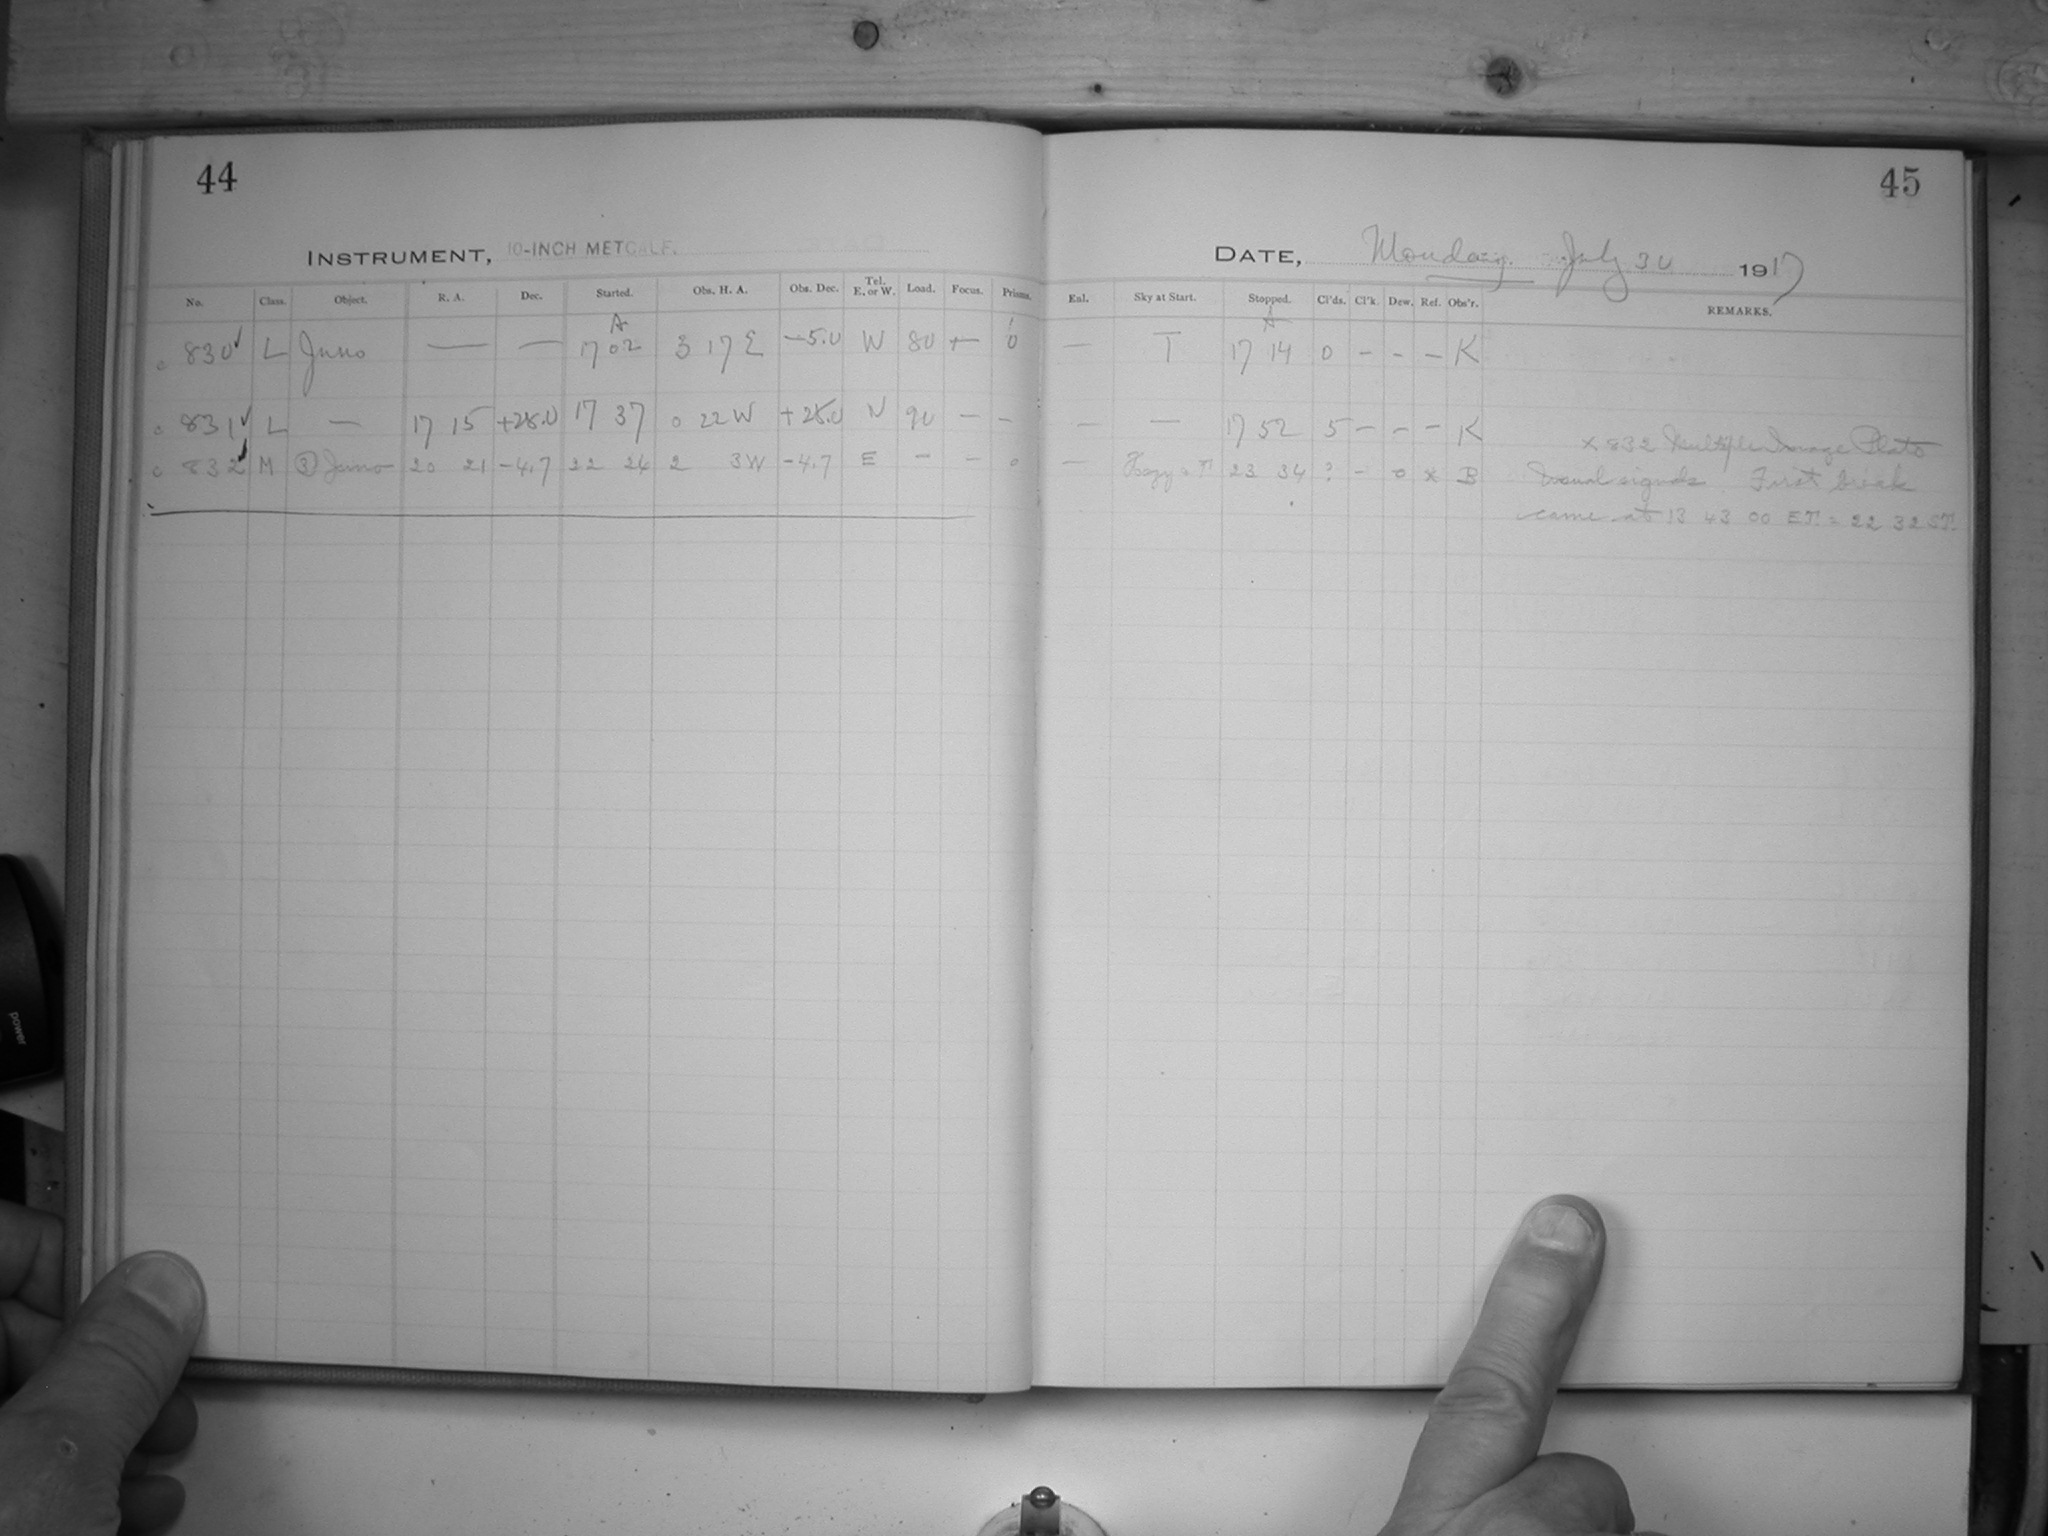 44
45
INSTRUMENT, 10-INCH METCALF.
DATE, Monday. July 30 1917
No. Class. Object. R. A. Dec. Started. Obs. H. A. Obs. Dec. Tel. E. or W. Load. Focus. Prisms. Enl. Sky at Start. Stopped. Cl'ds. Cl'k. Dew. Ref. Obs'r. REMARKS.
c 830 ✓ L Juno — — A 17 02 3 17 E -5.0 W 80 + 0 — T A 17 14 0 - - - K
c 831 ✓ L — 17 15 +28.0 17 37 0 22 W +28.0 W 90 — — — — 17 52 5 - - - K
x 832 Multiple Image Plate
c 832 ✓ M (3) Juno 20 21 -4.7 22 24 2 3W -4.7 E - - 0 — 23 34 ? - 0 x B
Usual signals First break
came at 13 43 00 ET. = 22 32 ST.
power